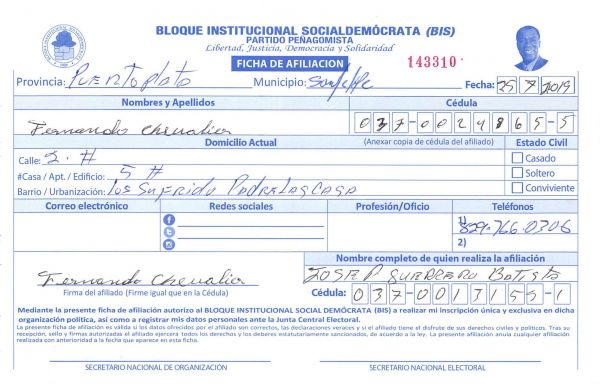 BLOQUE INSTITUCIONAL SOCIALDEMÓCRATA (BIS)
PARTIDO PEÑAGOMISTA
Libertad, Justicia, Democracia y Solidaridad
FICHA DE AFILIACION 143310
Provincia: Puerto plata Municipio: Fecha: 25 2019
Nombres y Apellidos Cédula
Fernando Chevalier 037-0024865-5
Domicilio Actual (Anexar copia de cédula del afiliado) Estado Civil
Calle: 2. # Casado
#Casa / Apt. / Edificio: 5 # Soltero
Barrio / Urbanización: Los Sufrido Padre Las Casa Conviviente
Correo electrónico Redes sociales Profesión/Oficio Teléfonos
1) 829-766-0306
2)
Nombre completo de quien realiza la afiliación
Fernando Chevalier JOSE P GUERRERO Batista
Firma del afiliado (Firme igual que en la Cédula) Cédula: 037-0013155-1
Mediante la presente ficha de afiliación autorizo al BLOQUE INSTITUCIONAL SOCIAL DEMÓCRATA (BIS) a realizar mi inscripción única y exclusiva en dicha
organización política, así como a registrar mis datos personales ante la Junta Central Electoral.
La presente ficha de afiliación es válida si los datos ofrecidos por el afiliado son correctos, las declaraciones veraces y si el afiliado tiene el disfrute de sus derechos civiles y políticos. Tras su
recepción, sello y firmas autorizadas el afiliado ejercerá todos los derechos y los deberes estatutariamente sancionados, de acuerdo a la ley. La presente afiliación anula cualquier afiliación
realizada con anterioridad a la fecha que aparece en esta ficha.
SECRETARIO NACIONAL DE ORGANIZACIÓN SECRETARIO NACIONAL ELECTORAL